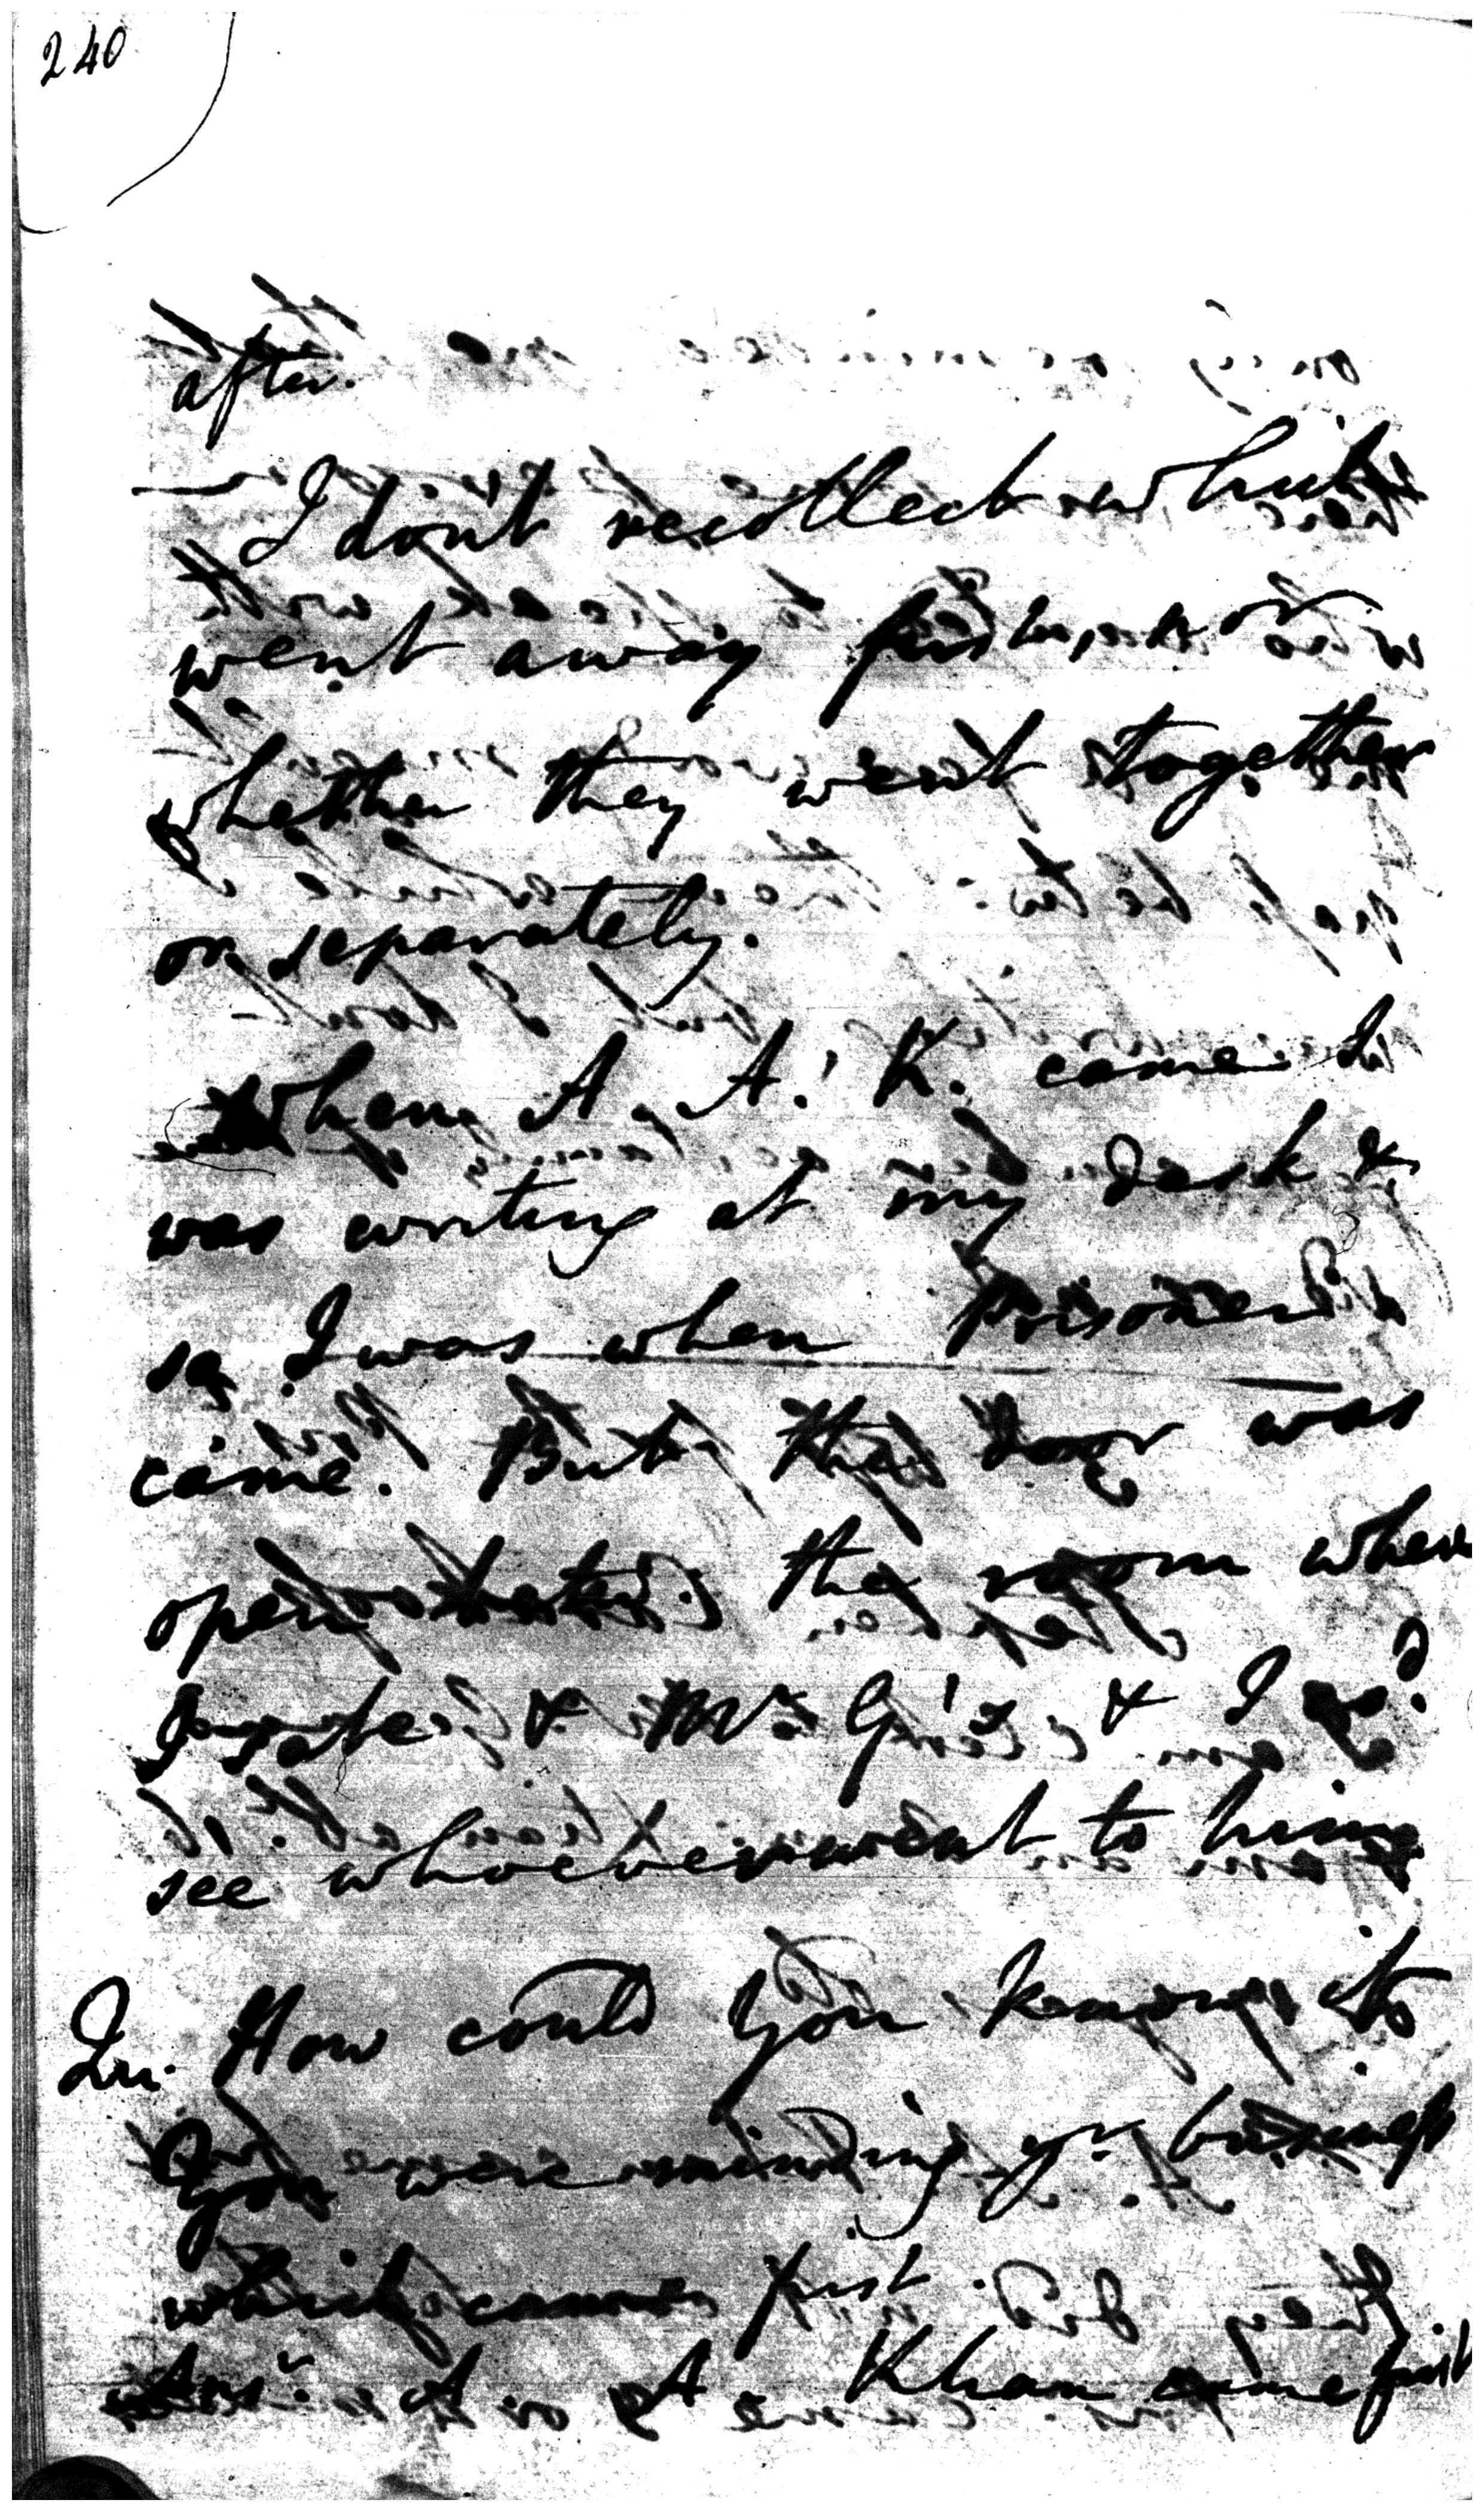 240
after.
I don't recollect which
went away first, or
whether they went together
or separately.
When A. A. K. came I
was writing at my desk &
so I was when Prisoner
came. But the door was
open the room where
I sate & Mr G's & I cd
see whoever went to him
Qu. How could you know it
You were minding yr business
which came first.
Ansr. A. A. Khan came first